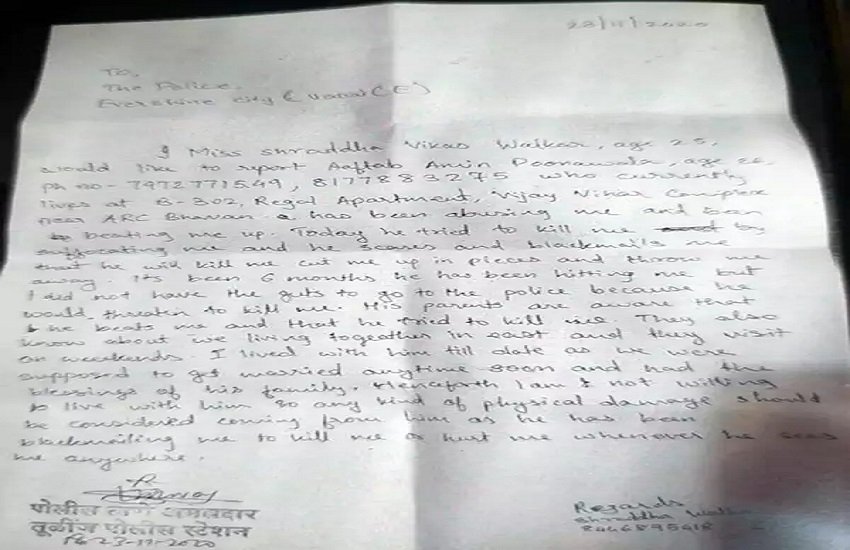 23/11/2020
To,
The Police,
Evershine city (Vasai (E)
I Miss Shraddha Vikas Walkar, age 25,
would like to report Aaftab Amin Poonawala, age 26,
ph no - 7972771549, 8177883275 who currently
lives at B-302, Regal Apartment, Vijay Vihar Complex
near ARC Bhavan & has been abusing me and been
beating me up. Today he tried to kill me by
suffocating me and he scares and blackmails me
that he will kill me cut me up in pieces and throw me
away. Its been 6 months he has been hitting me but
I did not have the guts to go to the police because he
would threaten to kill me. His parents are aware that
he beats me and that he tried to kill me. They also
know about we living together in east and they visit
on weekends. I lived with him till date as we were
supposed to get married anytime soon and had the
blessings of his family. Henceforth I am not willing
to live with him so any kind of physical damage should
be considered coming from him as he has been
blackmailing me to kill me or hurt me whenever he sees
me anywhere.
पोलीस ठाणे अंमलदार
तूळींज पोलीस स्टेशन
23-11-2020
Regards
Shraddha Walkar
8446895418